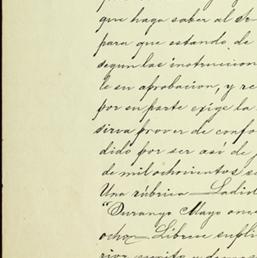 que haga saber al
para que estando de
segun las instruccion
le en aprobacion, y re
por su parte exige la
sirva prover de confo
dido por ser asi de j
de mil ochocientos se
Una rúbrica — Ladisl
"Durango Mayo once
ocho — Líbrese